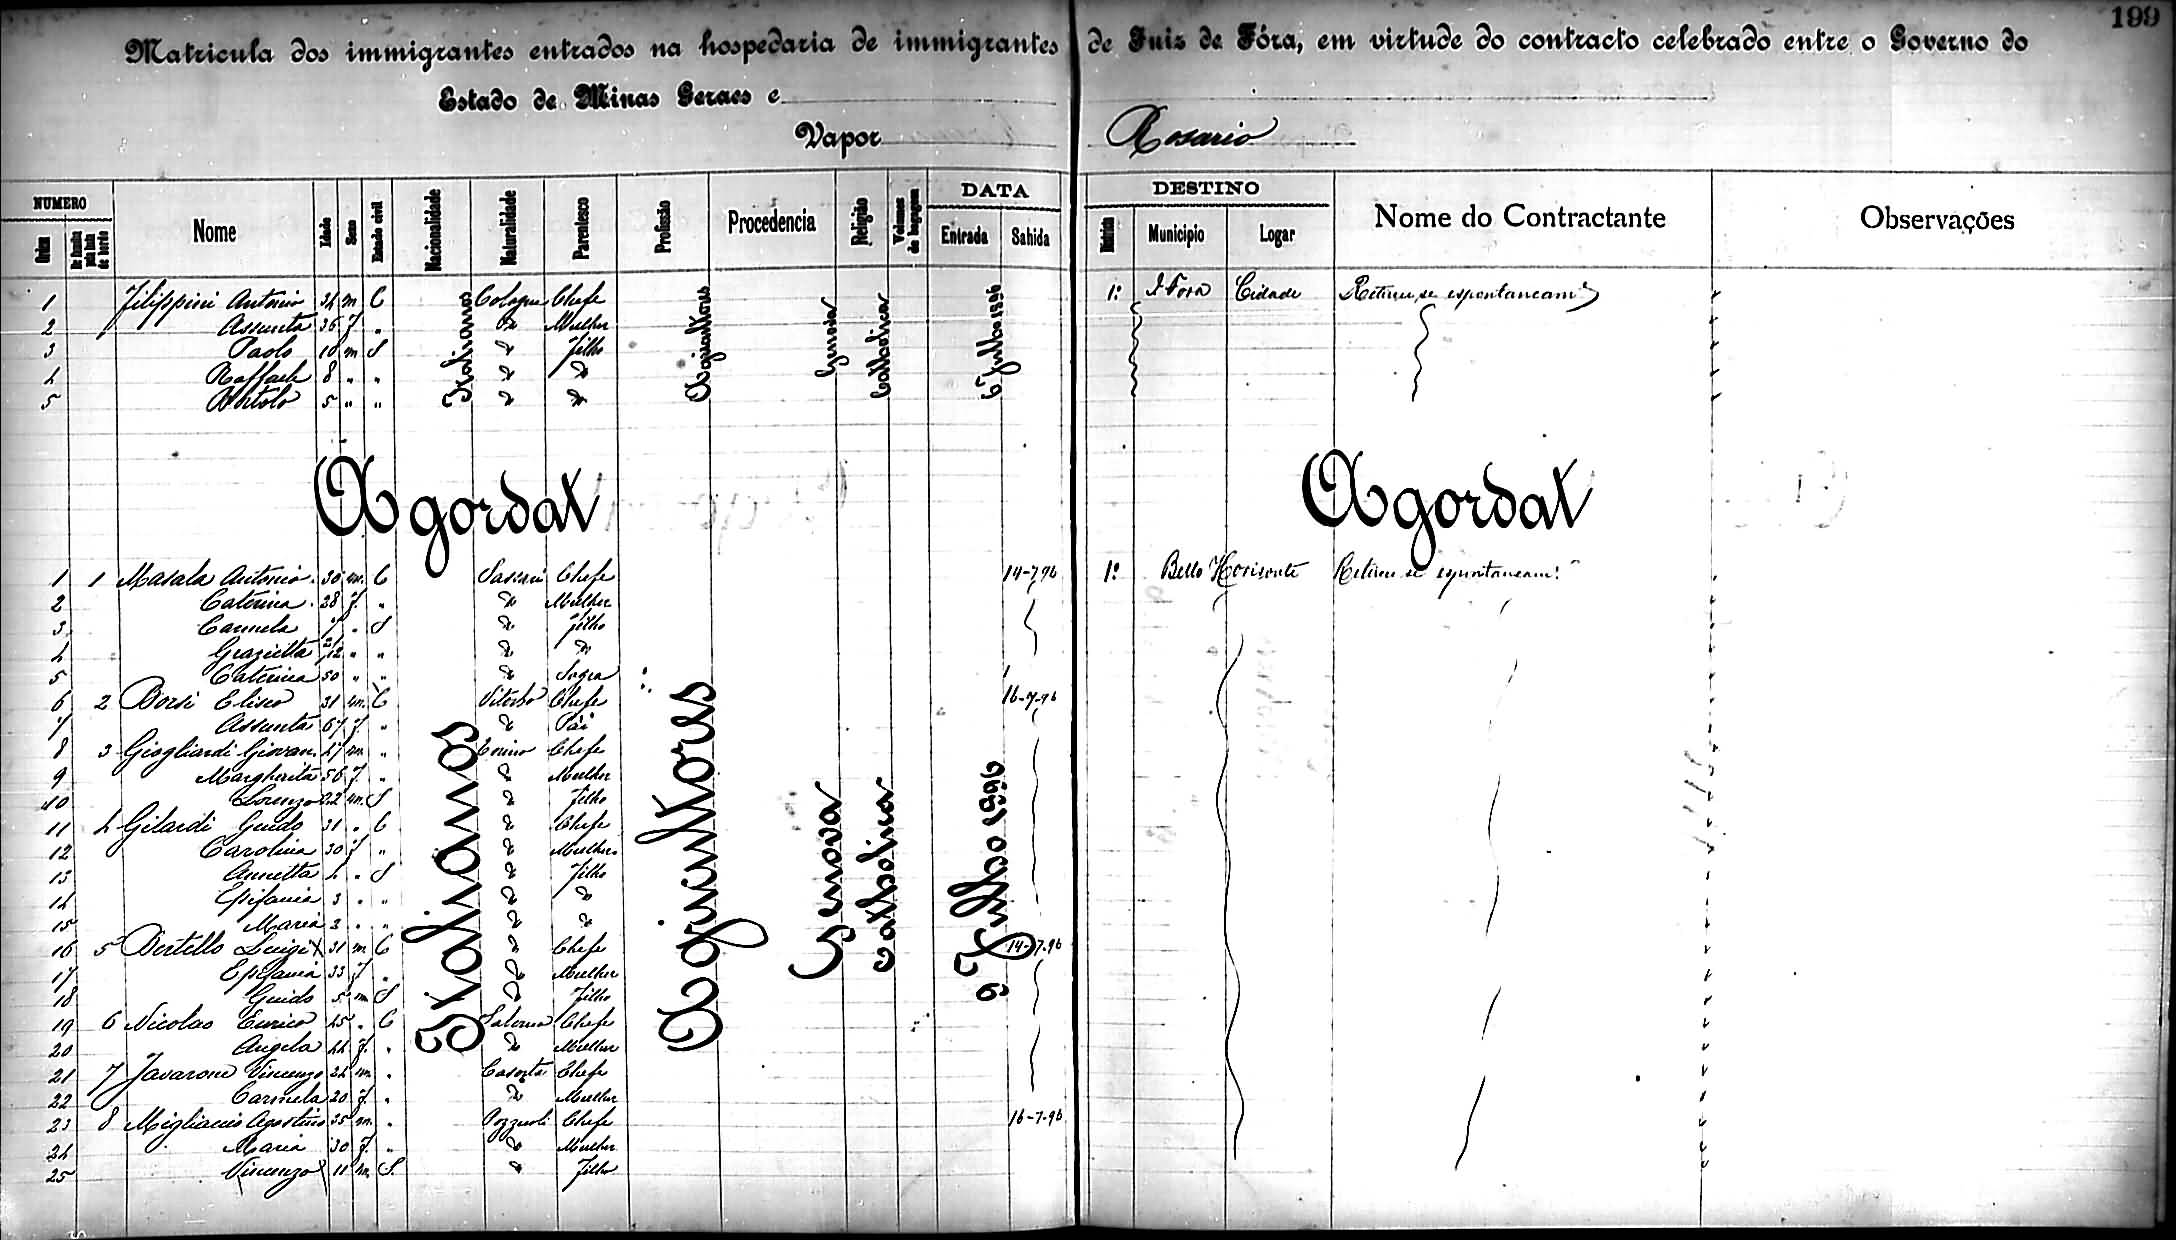 199
Matricula dos immigrantes entrados na hospedaria de immigrantes de Juiz de Fóra, em virtude do contracto celebrado entre o Governo do
Estado de Minas Geraes e
Vapor Rosario
NUMERO Nome Idade Sexo Estado civil Nacionalidade Naturalidade Parentesco Profissão Procedencia Religião Volumes de bagagem DATA DESTINO Nome do Contractante Observações
Ordem Entrada Sahida Districto Municipio Logar
1 Filippini Antonio 34 m C Italianos Cologna Chefe Agricultores Genova Catholica 6 Julho 1896 1º J. Fora Cidade Retirou-se espontaneamᵗᵉ
2 Assunta 36 f " Dº Mulher
3 Paolo 10 m S Dº Filho
4 Raffaele 8 " " Dº Dº
5 Bortolo 5 " " Dº Dº
Agordat Agordat
1 1 Masala Antonio 30 m. C Italianos Sassari Chefe Agricultores Genova catholica 9 Julho 1896 14-7-96 1º Bello Horisonte Retirou-se espontaneamᵗᵉ
2 Caterina 28 f. " Dº Mulher
3 Carmela . S Dº Filho
4 Grazietta 2/12 " " Dº Dº
5 Caterina 50 " " Dº Sogra
6 2 Borsi Eliseo 31 m. C Viterbo Chefe 16-7-96
7 Assunta 67 f. " Dº Pai
8 3 Giogliardi Giovan. 47 m. " Torino Chefe
9 Margherita 56 f. " Dº Mulher
10 Lorenzo 22 m. S Dº Filho
11 4 Gilardi Guido 31 . C Dº Chefe
12 Carolina 30 f " Dº Mulher
13 Annetta 4 . S Dº Filho
14 Epifania 3 . " Dº Dº
15 Maria 2 . " Dº Dº
16 5 Bertello Luigi 31 m C Dº Chefe 14-7-96
17 Epifania 33 f . Dº Mulher
18 Guido 5 m S Dº Filho
19 6 Nicolao Enrico 45 . C Salerno Chefe
20 Angela 44 f. . Dº Mulher
21 7 Javarone Vincenzo 24 m. . Caserta Chefe
22 Carmela 20 f. . Dº Mulher
23 8 Migliacio Agostino 35 m. . Pozzuoli Chefe 16-7-96
24 Maria 30 f. " Dº Mulher
25 Vincenzo 11 m. S. Dº Filho